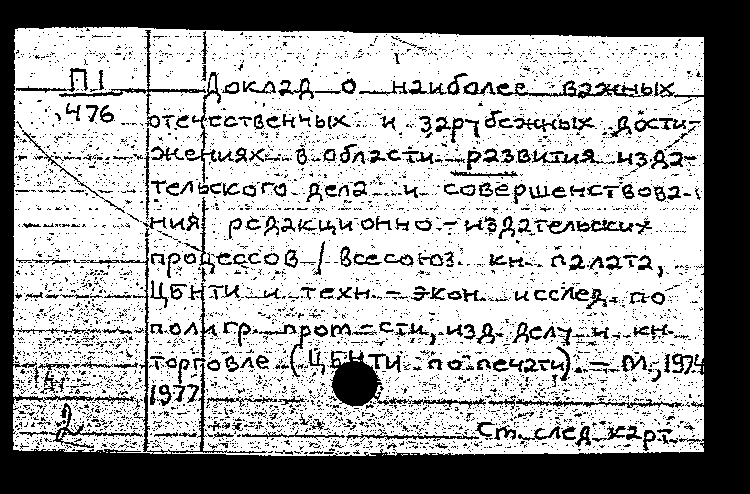 П1
476
Доклад о наиболее важных
отечественных и зарубежных дости-
жениях в области развития изда-
тельского дела и совершенствова-
ния редакционно-издательских
процессов / Всесоюз. кн. палата,
ЦБНТИ и техн.-экон. исслед. по
полигр. пром-сти, изд. делу и кн.
торговле (ЦБНТИ по печати). – М., 1974
1977
2
Ст. след карт